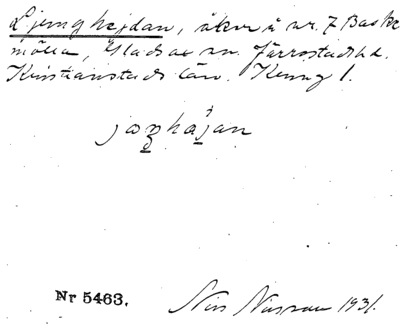 Ljunghejdan, åker å nr. 7 Baske
mölla, Gladsax sn. Järrestads hd.
Kristianstads län. Kung 1.
Nr 5463.
Nils Nilsson 1931.